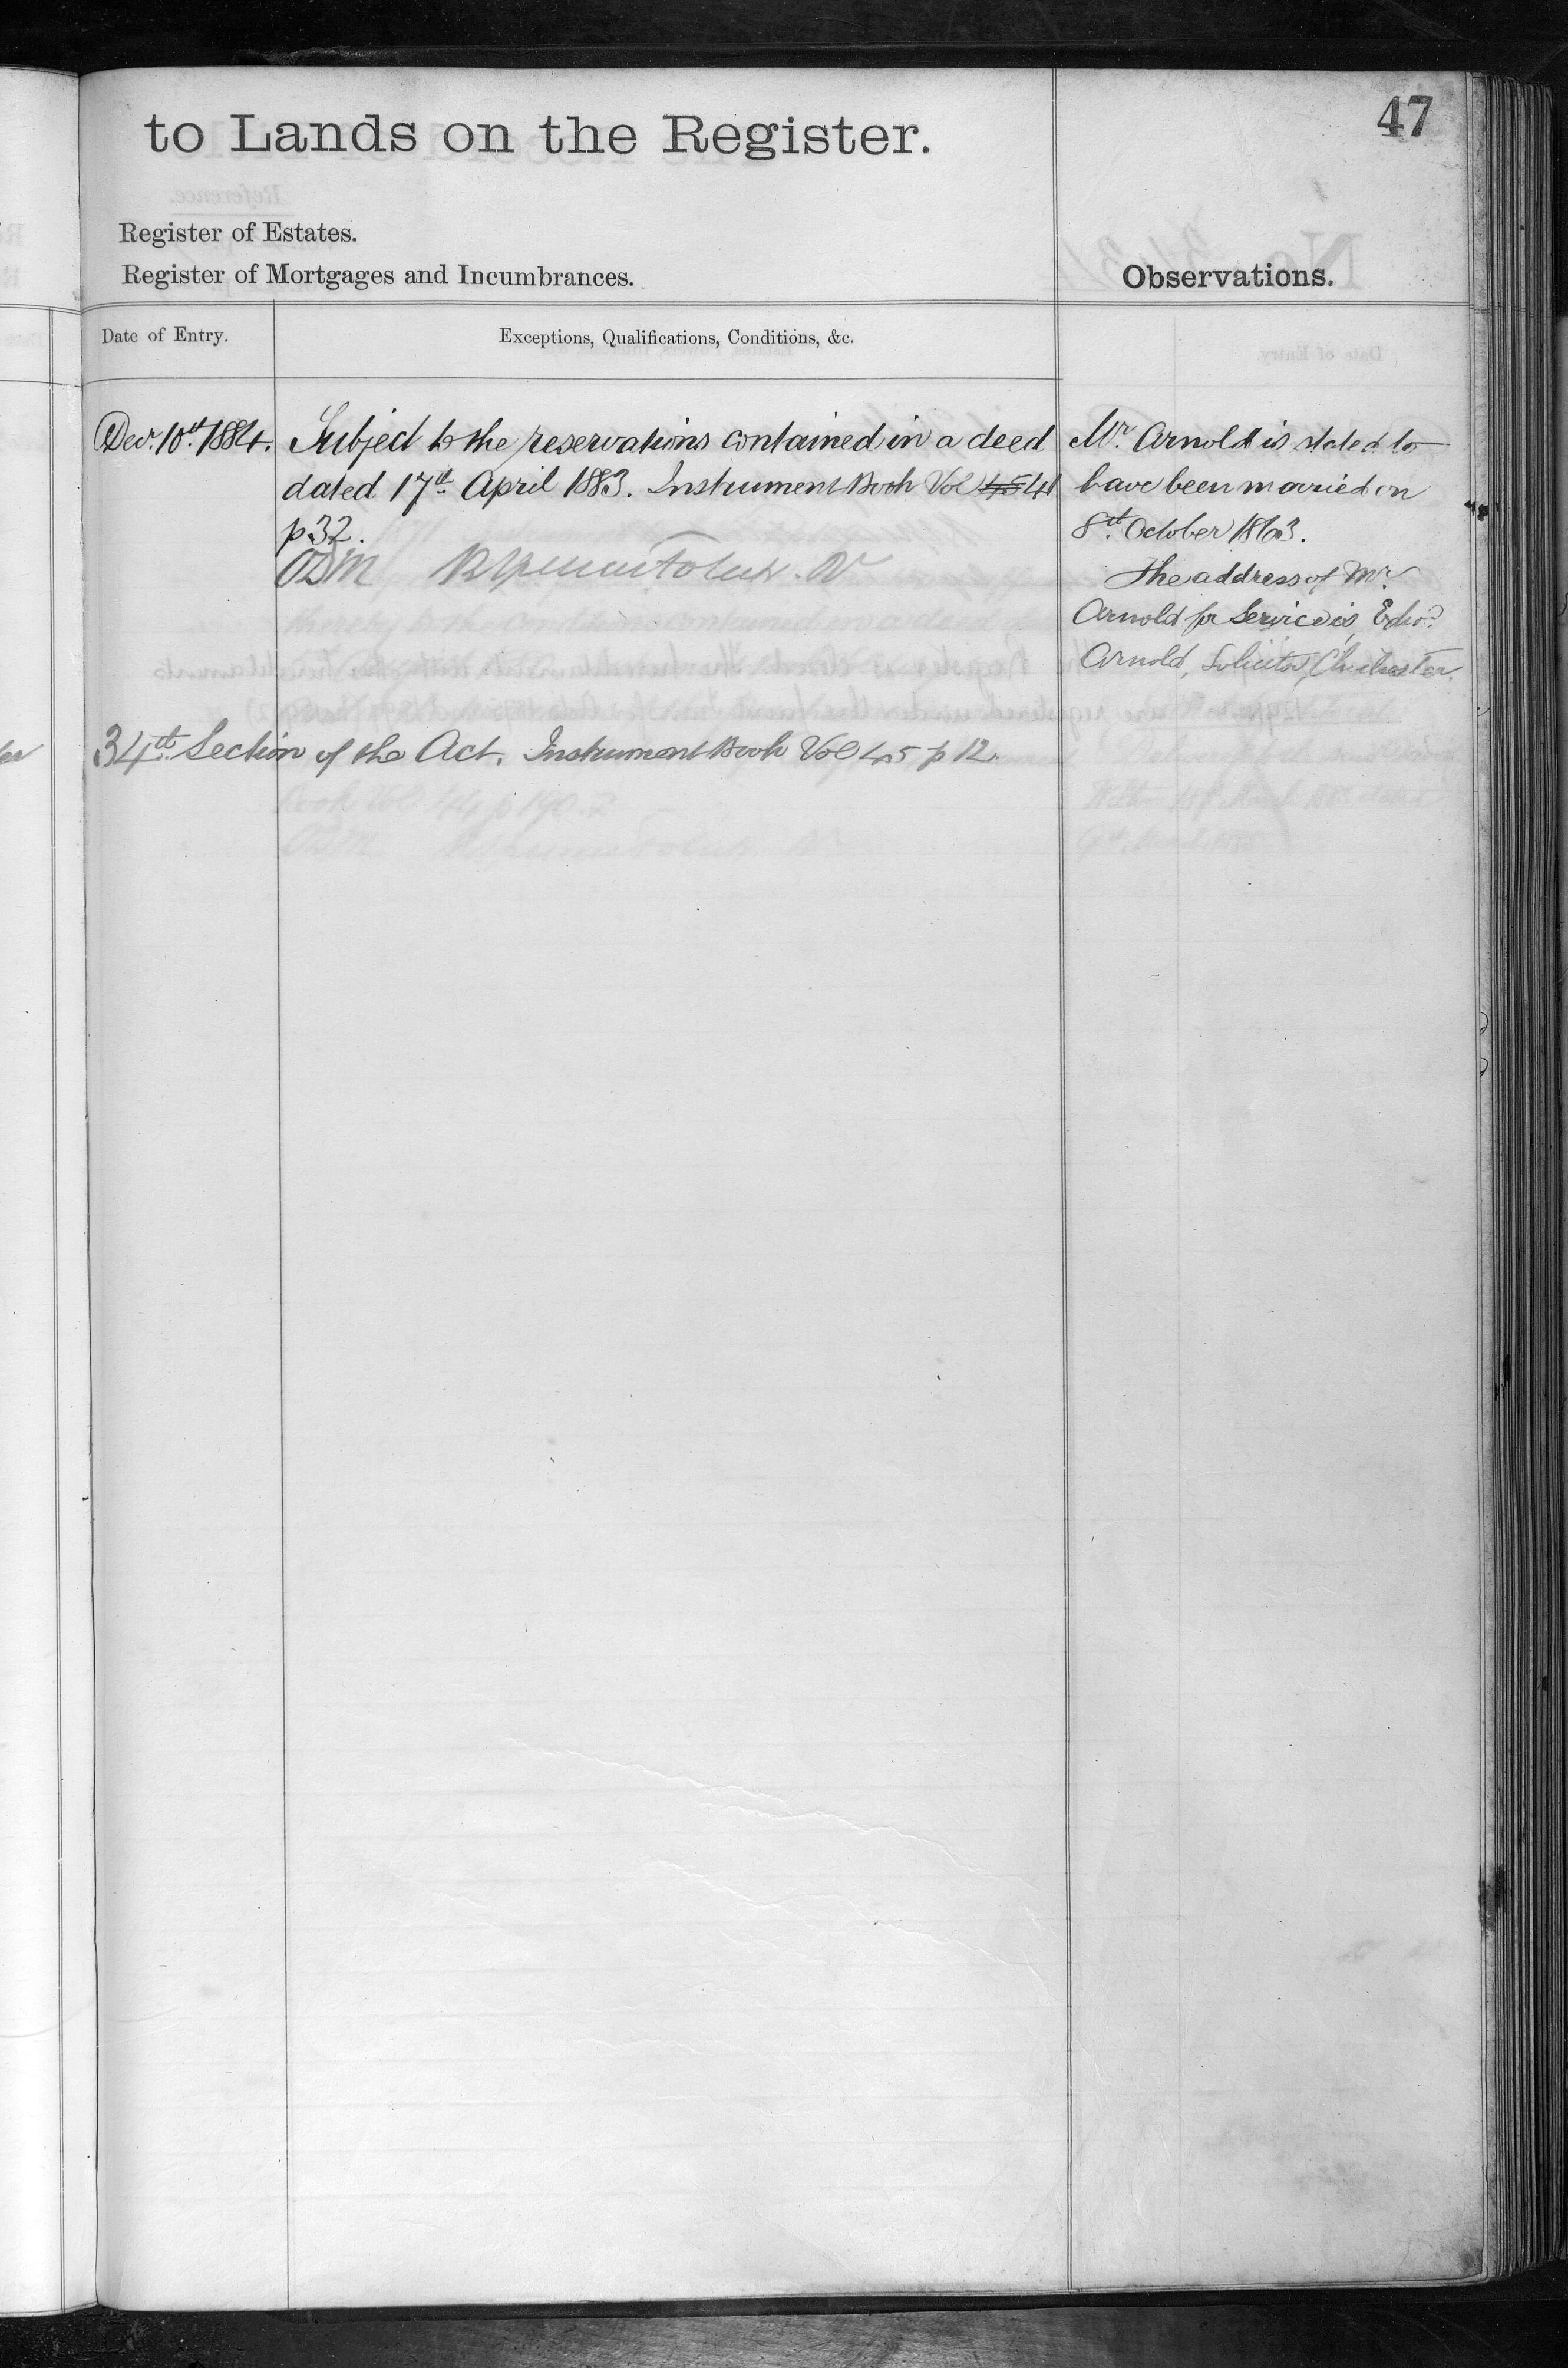 47
to Lands on the Register.
Register of Estates.
Register of Mortgages and Incumbrances.
Observations.
Date of Entry.
Exceptions, Qualifications, Conditions, &c.
Decr. 10th 1884. Subject to the reservations contained in a deed
dated 17th April 1883. Instrument Book Vol 45 41
p 32.
Mr. Arnold is stated to
have been married on
8th October 1863.
The address of Mr.
Arnold for Service is, Edwd.
Arnold, Solicitor, Chichester.
34th Section of the Act. Instrument Book Vol 45 p 12.